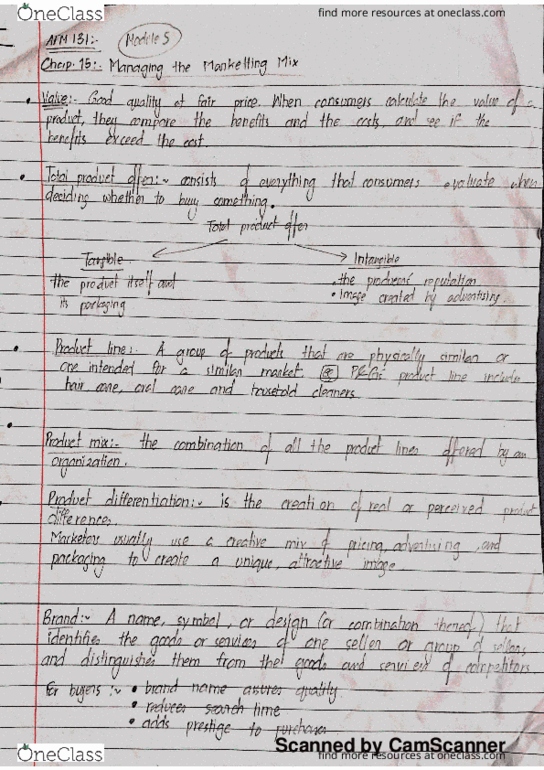 OneClass
find more resources at oneclass.com
AFM 131:-
Module 5
Chap. 15:- Managing the Marketting Mix
Value:- Good quality at fair price. When consumers calculate the value of a
product, they compare the benefits and the costs, and see if the
benefits exceed the cost.
Total product offer:- consists of everything that consumers evaluate when
deciding whether to buy something.
Total product offer
Tangible
Intangible
the product itself and
its packaging
• the producers' reputation
• Image created by advertising.
Product line:- A group of products that are physically similar or
are intended for a similar market. eg P&G's product line include
hair care, oral care and household cleaners.
Product mix:- the combination of all the product lines offered by an
organization.
Product differentiation:- is the creation of real or perceived product
differences.
Marketers usually use a creative mix of pricing, advertising, and
packaging to create a unique, attractive image
Brand:- A name, symbol, or design (or combination thereof) that
identifies the goods or services of one seller or group of sellers
and distinguishes them from the goods and services of competitors
For buyers:- • brand name assures quality
• reduces search time
• adds prestige to purchases
Scanned by CamScanner
OneClass
find more resources at oneclass.com